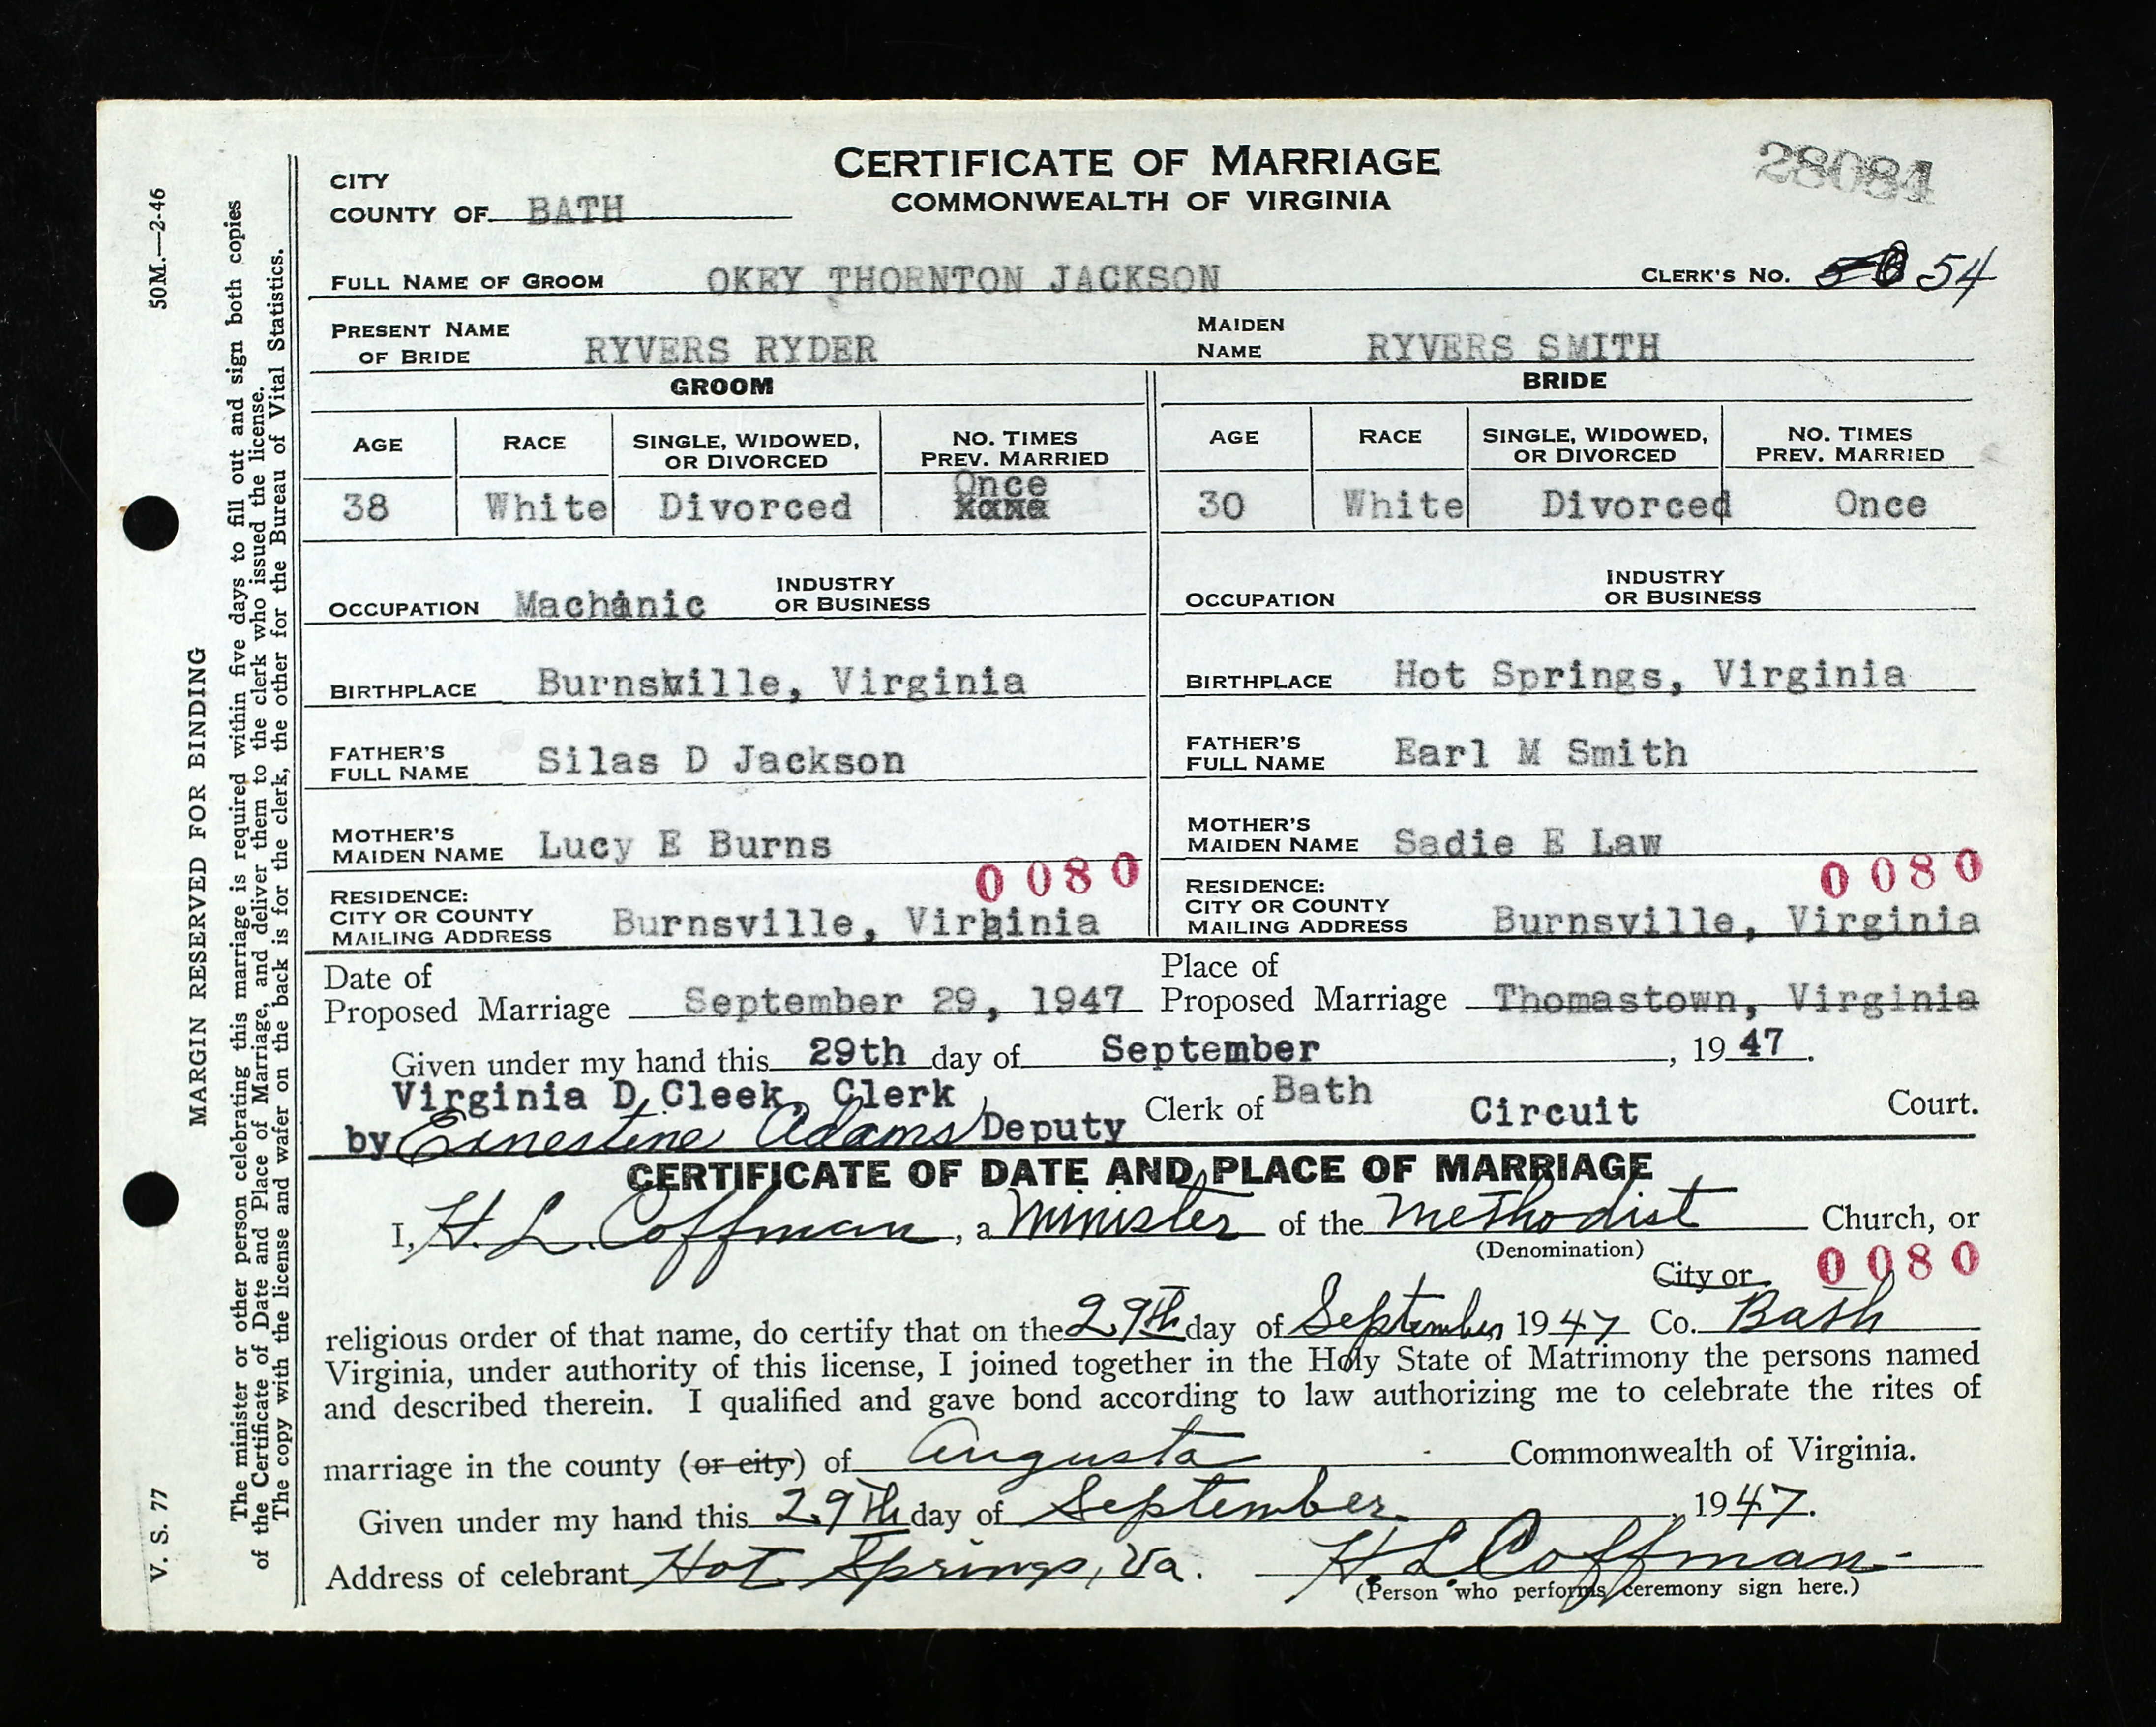 CERTIFICATE OF MARRIAGE
COMMONWEALTH OF VIRGINIA
28084
CITY
COUNTY OF BATH
FULL NAME OF GROOM OKEY THORNTON JACKSON CLERK'S NO. 54
PRESENT NAME OF BRIDE RYVERS RYDER MAIDEN NAME RYVERS SMITH
GROOM BRIDE
AGE RACE SINGLE, WIDOWED, OR DIVORCED NO. TIMES PREV. MARRIED AGE RACE SINGLE, WIDOWED, OR DIVORCED NO. TIMES PREV. MARRIED
38 White Divorced Once 30 White Divorced Once
OCCUPATION Machanic INDUSTRY OR BUSINESS OCCUPATION INDUSTRY OR BUSINESS
BIRTHPLACE Burnsville, Virginia BIRTHPLACE Hot Springs, Virginia
FATHER'S FULL NAME Silas D Jackson FATHER'S FULL NAME Earl M Smith
MOTHER'S MAIDEN NAME Lucy E Burns MOTHER'S MAIDEN NAME Sadie E Law
0080 0080
RESIDENCE: CITY OR COUNTY MAILING ADDRESS Burnsville, Virginia RESIDENCE: CITY OR COUNTY MAILING ADDRESS Burnsville, Virginia
Date of Proposed Marriage September 29, 1947 Place of Proposed Marriage Thomastown, Virginia
Given under my hand this 29th day of September, 1947.
Virginia D Cleek, Clerk
by Ernestine Adams Deputy Clerk of Bath Circuit Court.
CERTIFICATE OF DATE AND PLACE OF MARRIAGE
I, H. L. Coffman, a Minister of the Methodist Church, or
(Denomination)
City or 0080
religious order of that name, do certify that on the 29th day of September 1947 Co. Bath
Virginia, under authority of this license, I joined together in the Holy State of Matrimony the persons named
and described therein. I qualified and gave bond according to law authorizing me to celebrate the rites of
marriage in the county (or city) of Augusta Commonwealth of Virginia.
Given under my hand this 29th day of September, 1947.
Address of celebrant Hot Springs, Va. H L Coffman
(Person who performs ceremony sign here.)
V. S. 77 MARGIN RESERVED FOR BINDING 50M.—2-46
The minister or other person celebrating this marriage is required within five days to fill out and sign both copies
of the Certificate of Date and Place of Marriage, and deliver them to the clerk who issued the license.
The copy with the license and wafer on the back is for the clerk, the other for the Bureau of Vital Statistics.